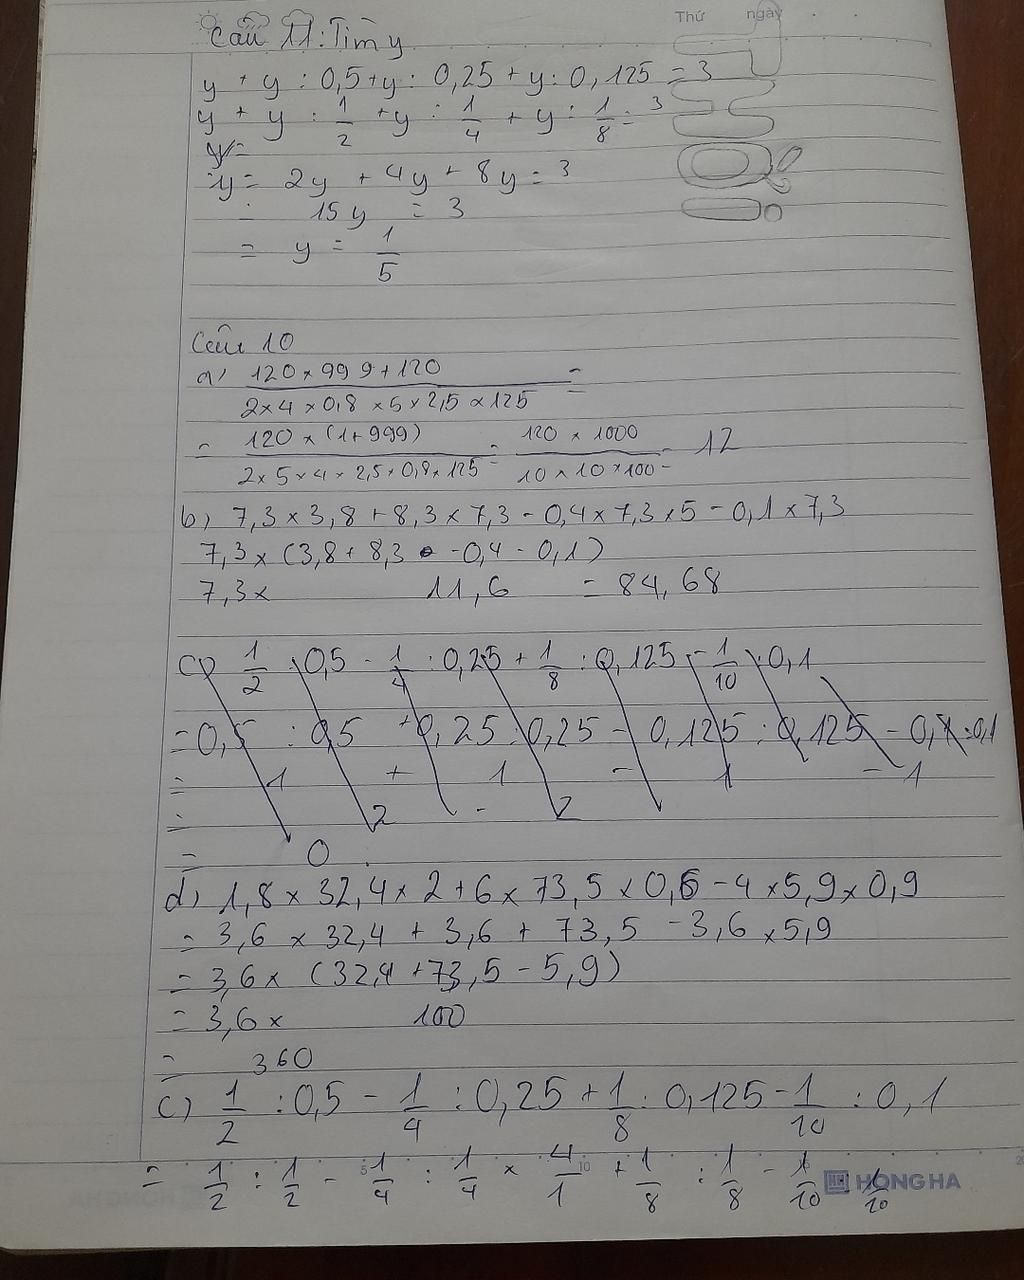 Thứ ngày
Câu 11: Tìm y
y + y : 0,5 + y : 0,25 + y : 0,125 = 3
y + y : 1/2 + y : 1/4 + y : 1/8 = 3
y =
y = 2y + 4y + 8y = 3
= 15y = 3
= y = 1/5
Câu 10
a, (120 × 999 + 120)/(2×4×0,8×5×2,5×125) =
= (120 × (1+999))/(2×5×4×2,5×0,8×125) = (120 × 1000)/(10×10×100) = 12
b, 7,3 × 3,8 + 8,3 × 7,3 - 0,4 × 7,3 × 5 - 0,1 × 7,3
7,3 × (3,8 + 8,3 - 0,4 - 0,1)
7,3 × 11,6 = 84,68
c, 1/2 : 0,5 - 1/4 : 0,25 + 1/8 : 0,125 - 1/10 : 0,1
= 0,5 : 0,5 + 0,25 : 0,25 - 0,125 : 0,125 - 0,1 : 0,1
= 1 + 1 - 1 - 1
= 2 - 2
= 0
d, 1,8 × 32,4 × 2 + 6 × 73,5 × 0,6 - 4 × 5,9 × 0,9
= 3,6 × 32,4 + 3,6 + 73,5 - 3,6 × 5,9
= 3,6 × (32,4 + 73,5 - 5,9)
= 3,6 × 100
= 360
c, 1/2 : 0,5 - 1/4 : 0,25 + 1/8 : 0,125 - 1/10 : 0,1
= 1/2 : 1/2 - 1/4 : 1/4 × 4/1 + 1/8 : 1/8 - 1/10 : 1/10
5 10
HONG HA